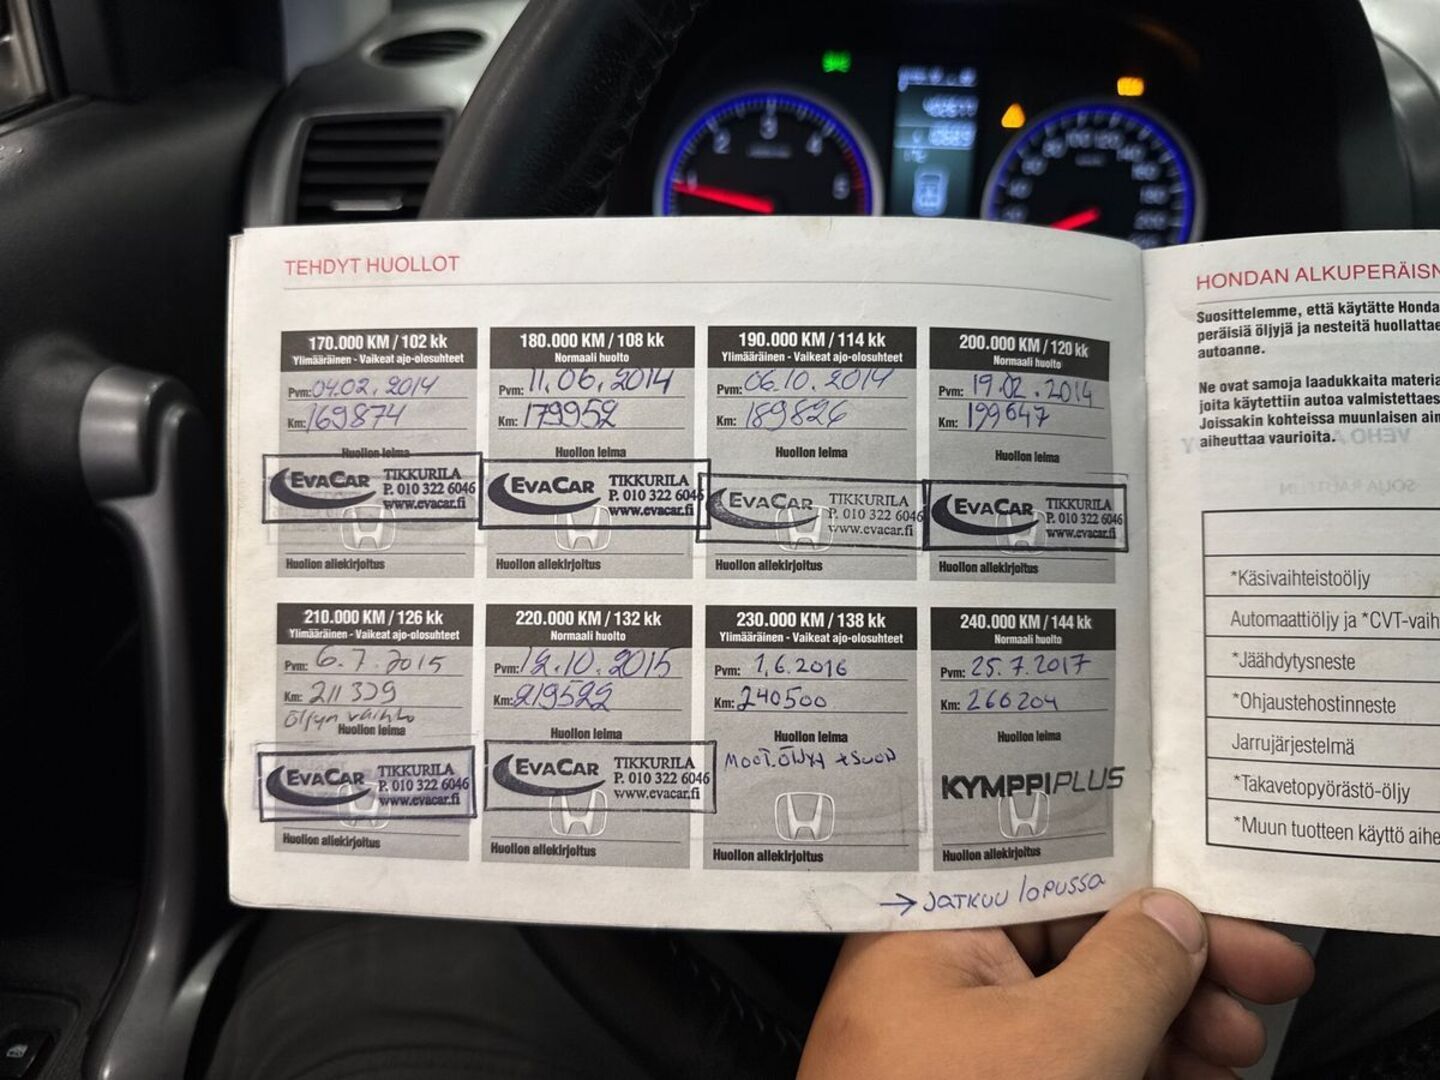 TEHDYT HUOLLOT
170.000 KM / 102 kk
Ylimääräinen - Vaikeat ajo-olosuhteet
Pvm: 04.02.2014
Km: 169874
Huollon leima
EVACAR TIKKURILA
P. 010 322 6046
www.evacar.fi
Huollon allekirjoitus
180.000 KM / 108 kk
Normaali huolto
Pvm: 11.06.2014
Km: 179952
Huollon leima
EVACAR TIKKURILA
P. 010 322 6046
www.evacar.fi
Huollon allekirjoitus
190.000 KM / 114 kk
Ylimääräinen - Vaikeat ajo-olosuhteet
Pvm: 06.10.2014
Km: 189826
Huollon leima
EVACAR TIKKURILA
P. 010 322 6046
www.evacar.fi
Huollon allekirjoitus
200.000 KM / 120 kk
Normaali huolto
Pvm: 19.02.2014
Km: 199647
Huollon leima
EVACAR TIKKURILA
P. 010 322 6046
www.evacar.fi
Huollon allekirjoitus
210.000 KM / 126 kk
Ylimääräinen - Vaikeat ajo-olosuhteet
Pvm: 6.7.2015
Km: 211329
öljyn vaihto
Huollon leima
EVACAR TIKKURILA
P. 010 322 6046
www.evacar.fi
Huollon allekirjoitus
220.000 KM / 132 kk
Normaali huolto
Pvm: 12.10.2015
Km: 219522
Huollon leima
EVACAR TIKKURILA
P. 010 322 6046
www.evacar.fi
Huollon allekirjoitus
230.000 KM / 138 kk
Ylimääräinen - Vaikeat ajo-olosuhteet
Pvm: 1.6.2016
Km: 240500
Huollon leima
MOOT.ÖLJY +SUOD
Huollon allekirjoitus
240.000 KM / 144 kk
Normaali huolto
Pvm: 25.7.2017
Km: 260204
Huollon leima
KYMPPIPLUS
Huollon allekirjoitus
→ JATKUU LOPUSSA
HONDAN ALKUPERÄISN
Suosittelemme, että käytätte Honda
peräisiä öljyjä ja nesteitä huollattae
autoanne.
Ne ovat samoja laadukkaita materia
joita käytettiin autoa valmistettaes
Joissakin kohteissa muunlaisen ain
aiheuttaa vaurioita.
*Käsivaihteistoöljy
Automaattiöljy ja *CVT-vaih
*Jäähdytysneste
*Ohjaustehostinneste
Jarrujärjestelmä
*Takavetopyörästö-öljy
*Muun tuotteen käyttö aihe